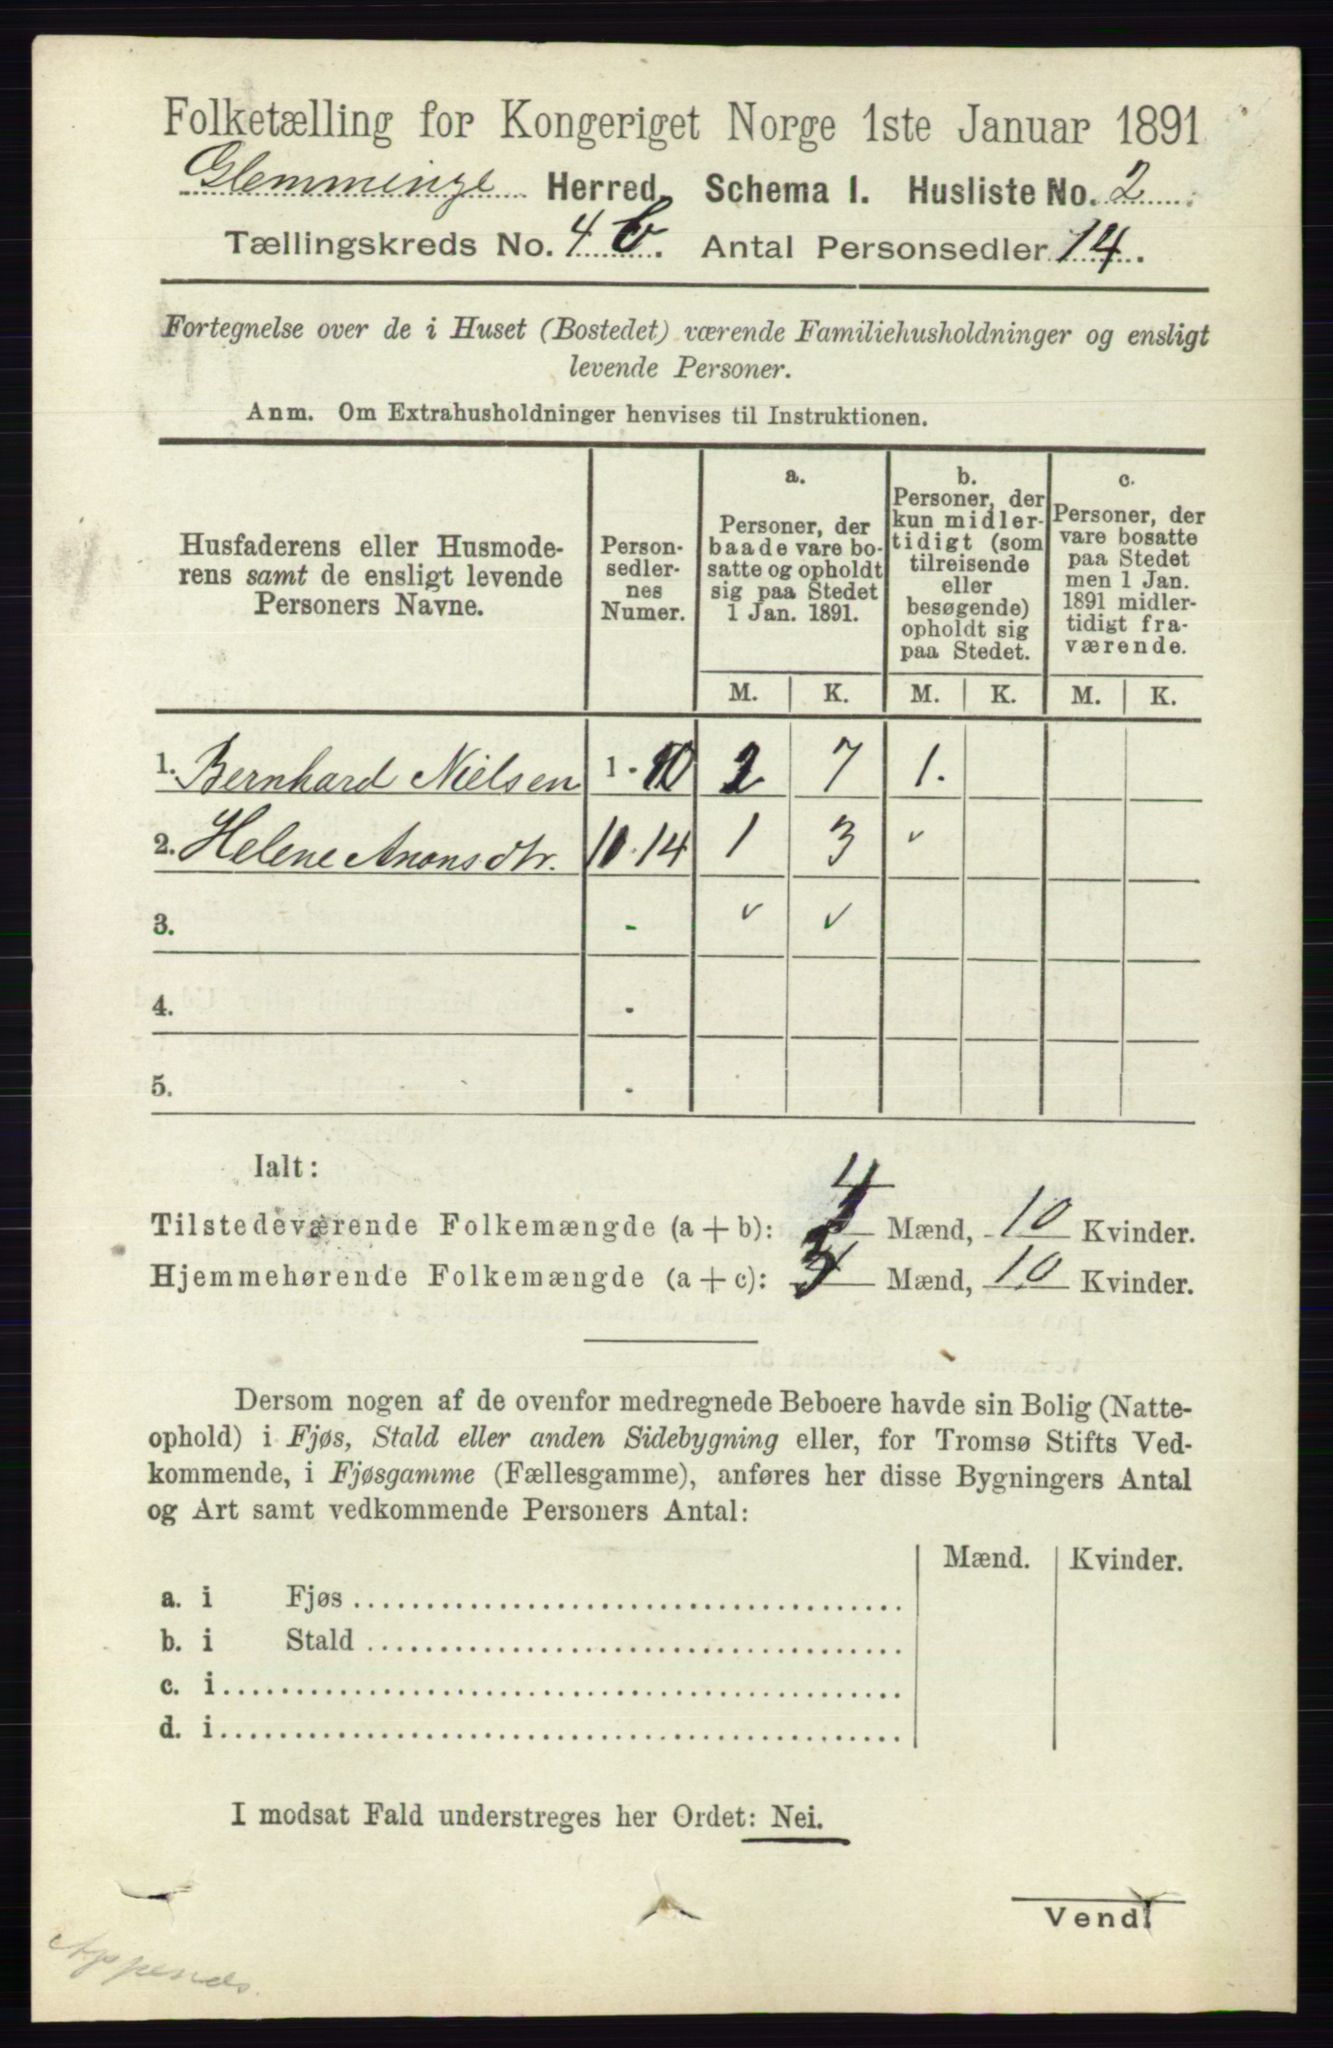 Folketælling for Kongeriget Norge 1ste Januar 1891
Glemminge Herred. Schema I. Husliste No. 2
Tællingskreds No. 4 b. Antal Personsedler 14.
Fortegnelse over de i Huset (Bostedet) værende Familiehusholdninger og ensligt
levende Personer.
Anm. Om Extrahusholdninger henvises til Instruktionen.
Husfaderens eller Husmode-
rens samt de ensligt levende
Personers Navne.
Person-
sedler-
nes
Numer.
a.
Personer, der
baade vare bo-
satte og opholdt
sig paa Stedet
1 Jan. 1891.
b.
Personer, der
kun midler-
tidigt (som
tilreisende
eller
besøgende)
opholdt sig
paa Stedet.
c.
Personer, der
vare bosatte
paa Stedet
men 1 Jan.
1891 midler-
tidigt fra-
værende.
M. K. M. K. M. K.
1. Bernhard Nielsen 1 - 10 2 7 1.
2. Helene Anonsdtr. 11-14 1 3 ✓
3. - ✓ ✓
4. -
5. -
Ialt:
Tilstedeværende Folkemængde (a + b): 4 Mænd, 10 Kvinder.
Hjemmehørende Folkemængde (a + c): 3 Mænd, 10 Kvinder.
Dersom nogen af de ovenfor medregnede Beboere havde sin Bolig (Natte-
ophold) i Fjøs, Stald eller anden Sidebygning eller, for Tromsø Stifts Ved-
kommende, i Fjøsgamme (Fællesgamme), anføres her disse Bygningers Antal
og Art samt vedkommende Personers Antal:
Mænd. Kvinder.
a. i Fjøs
b. i Stald
c. i
d. i
I modsat Fald understreges her Ordet: Nei.
Vend!